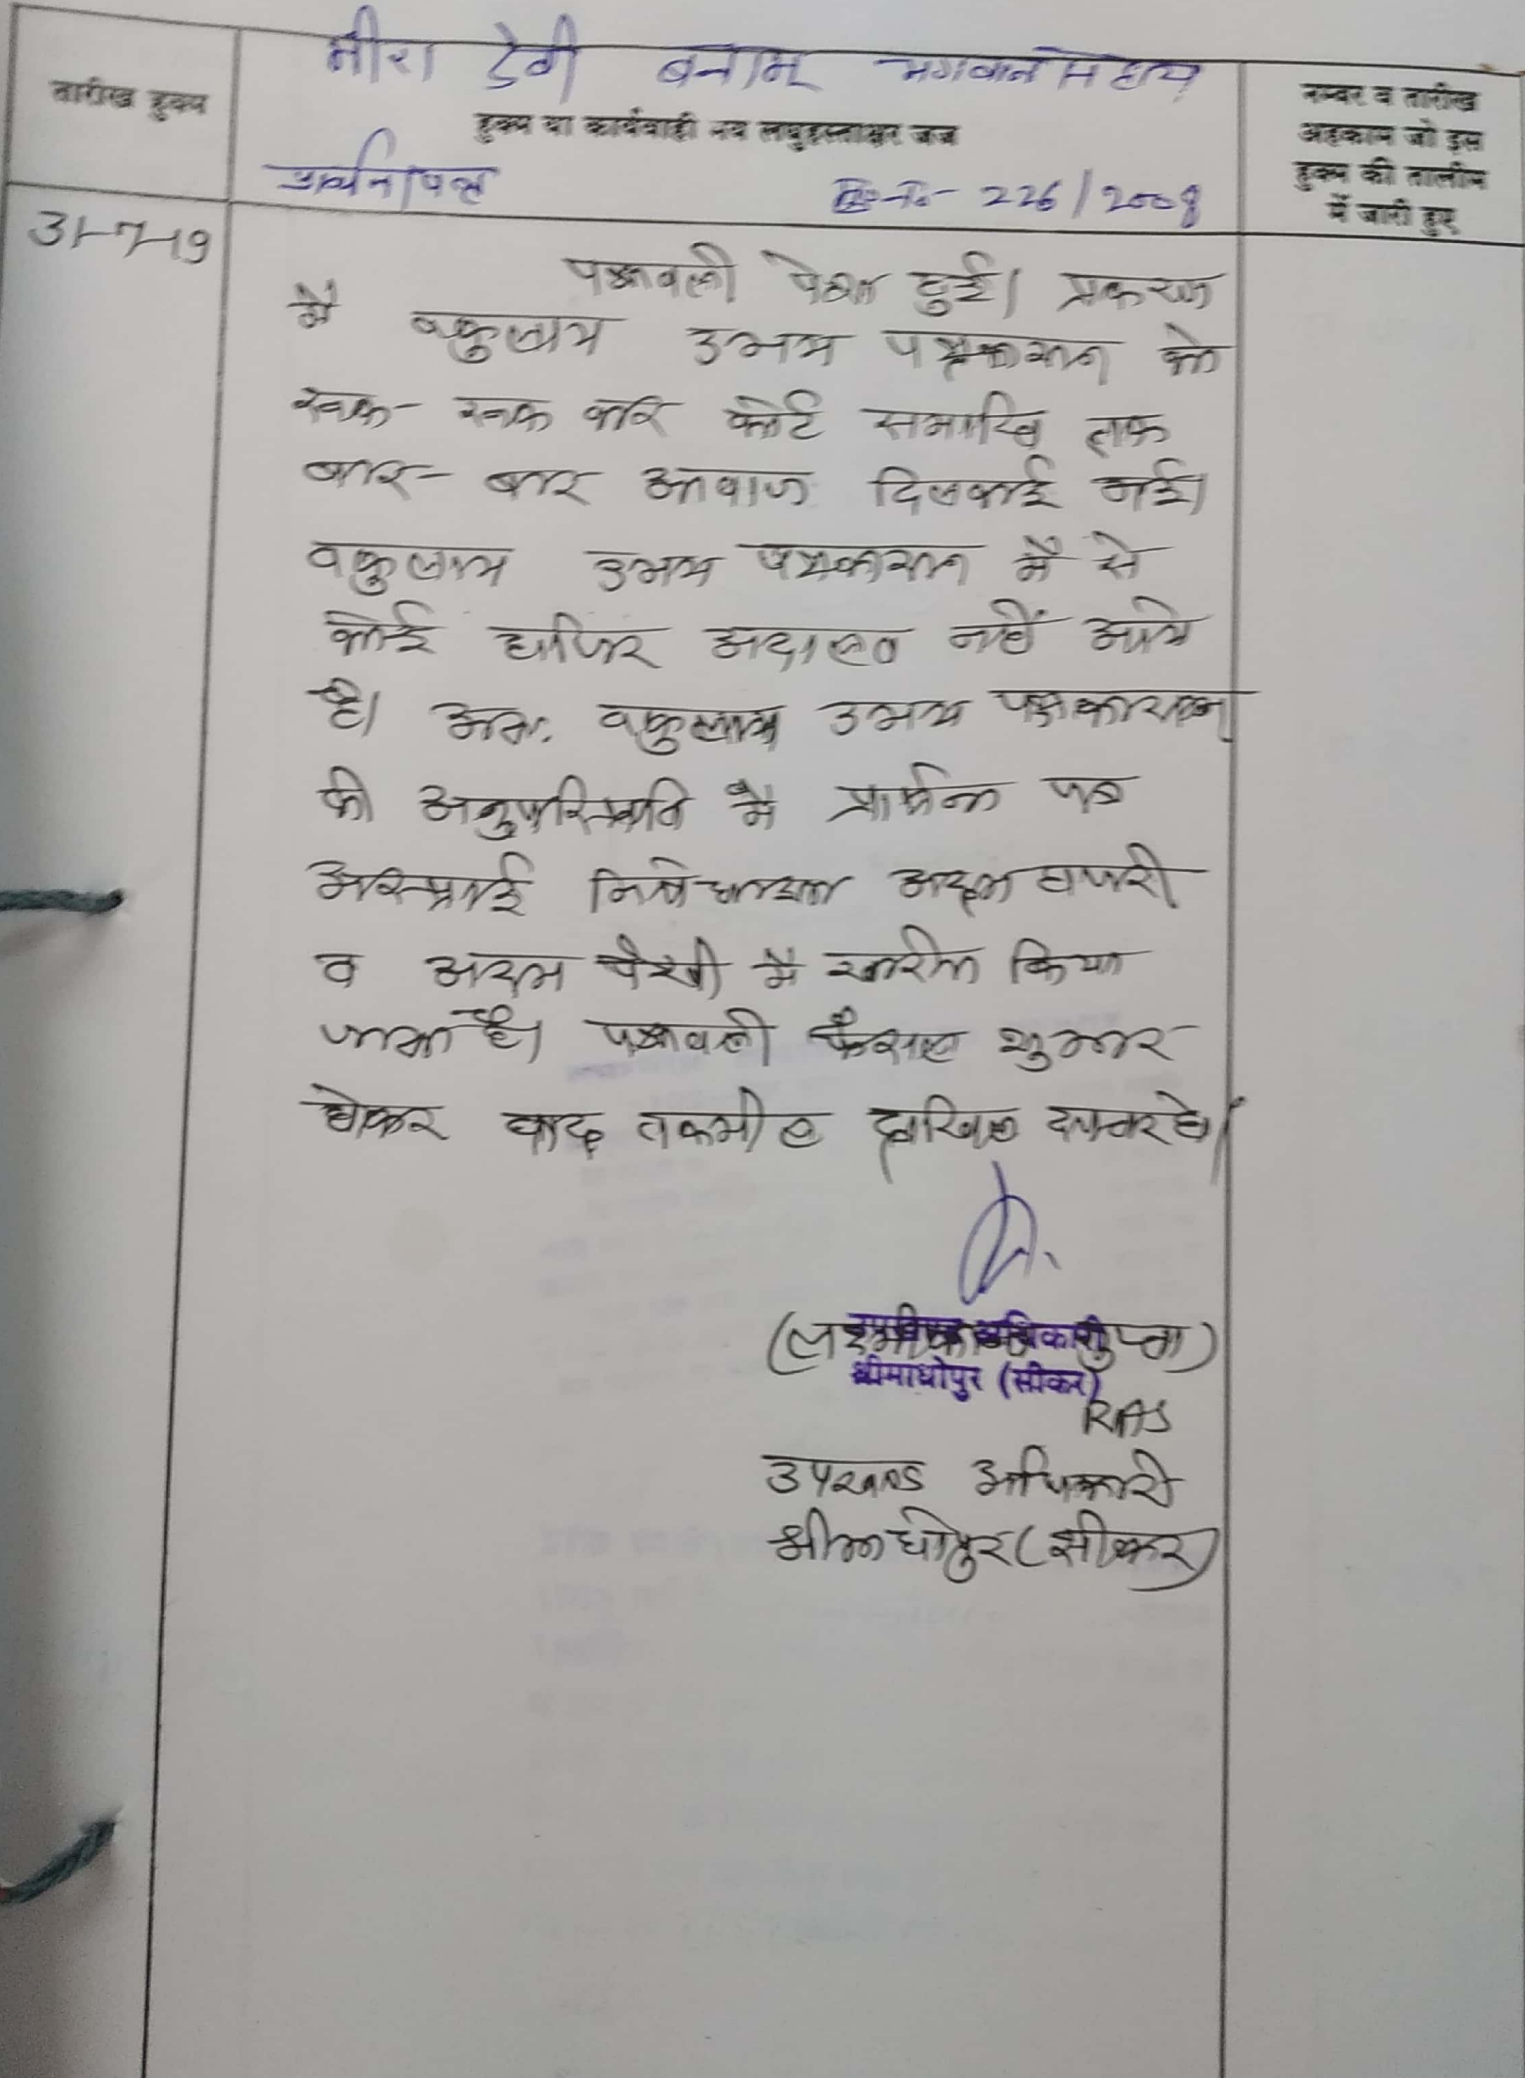 मीरा देवी बनाम भगवान सहाय
तारीख हुक्म
हुक्म या कार्यवाही मय लघुहस्ताक्षर जज
नम्बर व तारीख
अहकाम जो इस
हुक्म की तालीम
में जारी हुए
प्रार्थना पत्र
226/2008
31-7-19
पत्रावली पेश हुई। प्रकरण
में वकुलाय उभय पक्षकारान को
रूक-रूक कर कोर्ट समाप्ति तक
बार-बार आवाज दिलवाई गई।
वकुलाय उभय पक्षकारान में से
कोई हाजिर अदालत नहीं आये
है। अतः वकुलाय उभय पक्षकारान
की अनुपस्थिति में प्रार्थना पत्र
अस्थाई निषेधाज्ञा अदम हाजरी
व अदम पैरवी में खारीज किया
जाता है। पत्रावली फैसल शुमार
होकर बाद तकमील दाखिल दफ्तर हो।
(लक्ष्मीकान्त गुप्ता)
उपखण्ड अधिकारी
श्रीमाधोपुर (सीकर)
RAS
उपखण्ड अधिकारी
श्रीमाधोपुर (सीकर)